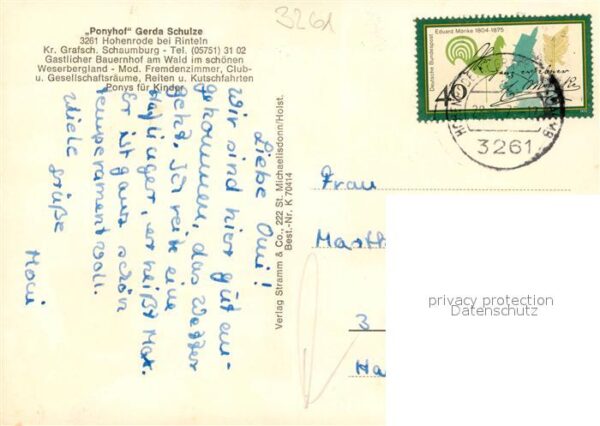 „Ponyhof“ Gerda Schulze
3261 Hohenrode bei Rinteln
Kr. Grafsch. Schaumburg - Tel. (05751) 31 02
Gastlicher Bauernhof am Wald im schönen
Weserbergland - Mod. Fremdenzimmer, Club-
u. Gesellschaftsräume, Reiten u. Kutschfahrten
Ponys für Kinder
3261
Liebe Omi!
Wir sind hier gut an-
gekommen, das Wetter
geht. Ich reite eine
Haflinger, er heißt Max.
Er ist ganz schön
temperamentvoll.
Viele Grüße
Moni
Verlag Stramm & Co., 222 St. Michaelisdonn/Holst.
Best.-Nr. K 70414
Deutsche Bundespost
Eduard Mörike 1804-1875
40
3261
Frau
3
privacy protection
Datenschutz